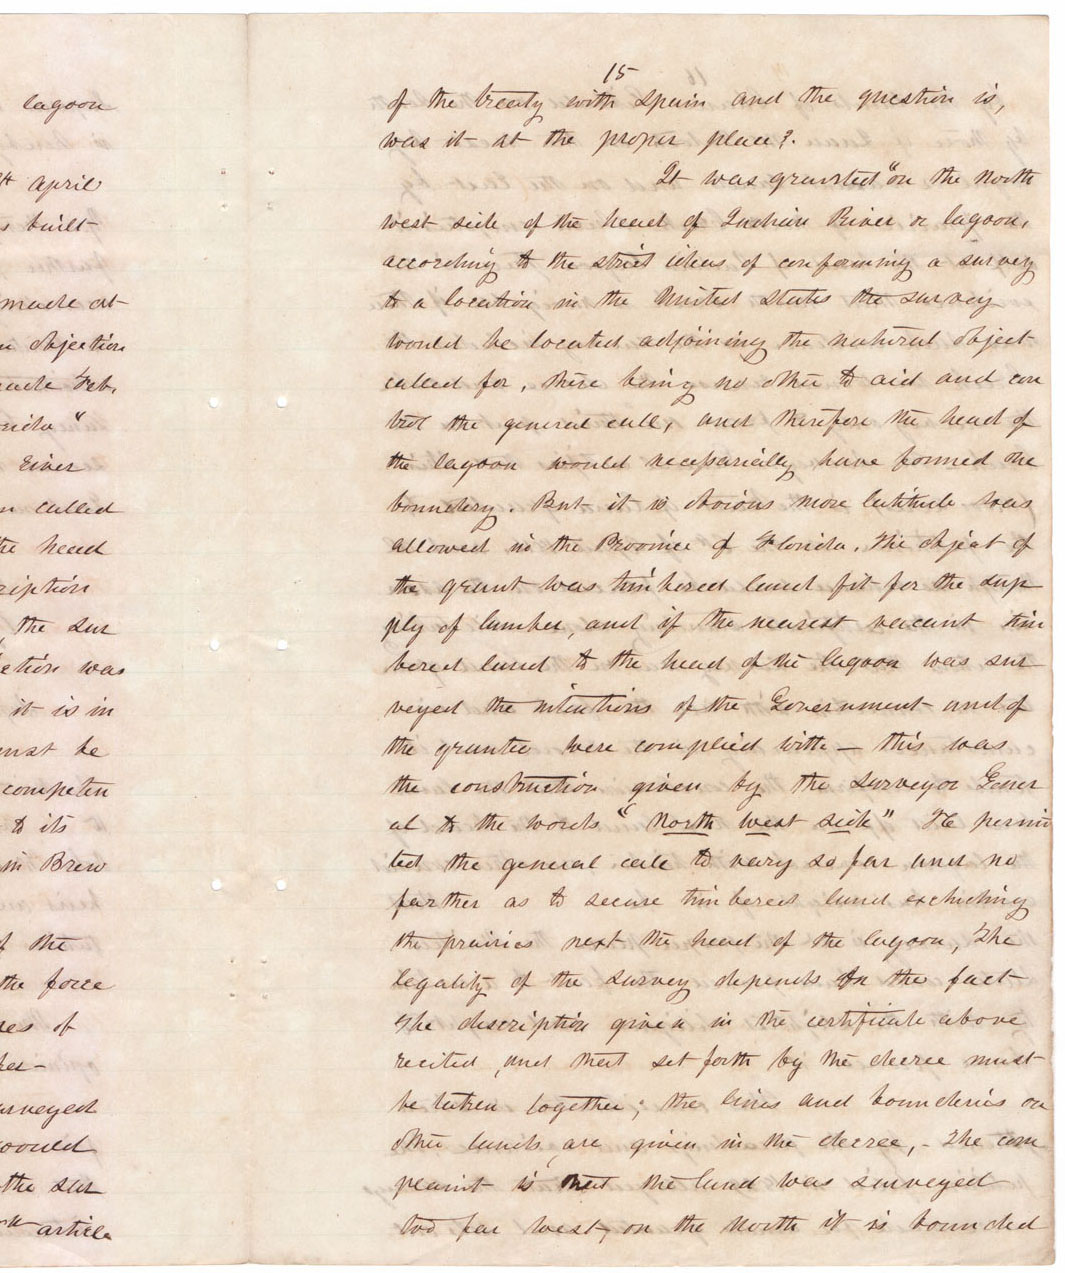 lagoon
april
built
made at
objection
Feb,
"
River
called
the head
the sur
was
it is in
must be
competen
to its
in Brew
of the
the force
of
surveyed
would
the sur
article
15
of the treaty with Spain and the question is,
was it at the proper place?.
It was granted "on the North
west side of the head of Indian River or lagoon,
according to the strict ideas of conforming a survey
to a location in the United States the survey
would be located adjoining the natural object
called for, there being no other to aid and con
trol the general call, and therefore the head of
the lagoon would necessarially have formed one
boundery. But it is obvious more latitude was
allowed in the Province of Florida. The object of
the grant was timbered land fit for the sup
ply of lumber, and if the nearest vacant tim
bered land to the head of the lagoon was sur
veyed the intentions of the Government and of
the grantee were complied with — this was
the construction given by the Surveyor Gener
al to the words "North West side" He permit
ted the general call to vary so far and no
farther as to secure timbered land excluding
the prairies next the head of the lagoon, The
legality of the survey depends on the fact
The description given in the certificate above
recited, and that set forth by the decree must
be taken together; the lines and bounderies on
other lands, are given in the decree, - The com
plaint is that the land was surveyed
too far west, on the North it is bounded